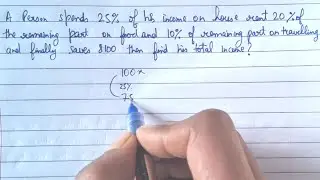 A Person spends 25% of his income on house rent 20% of
the remaining part on food and 10% of remaining part on travelling
and finally saves 8100 then find his total income?
100x
25%
75